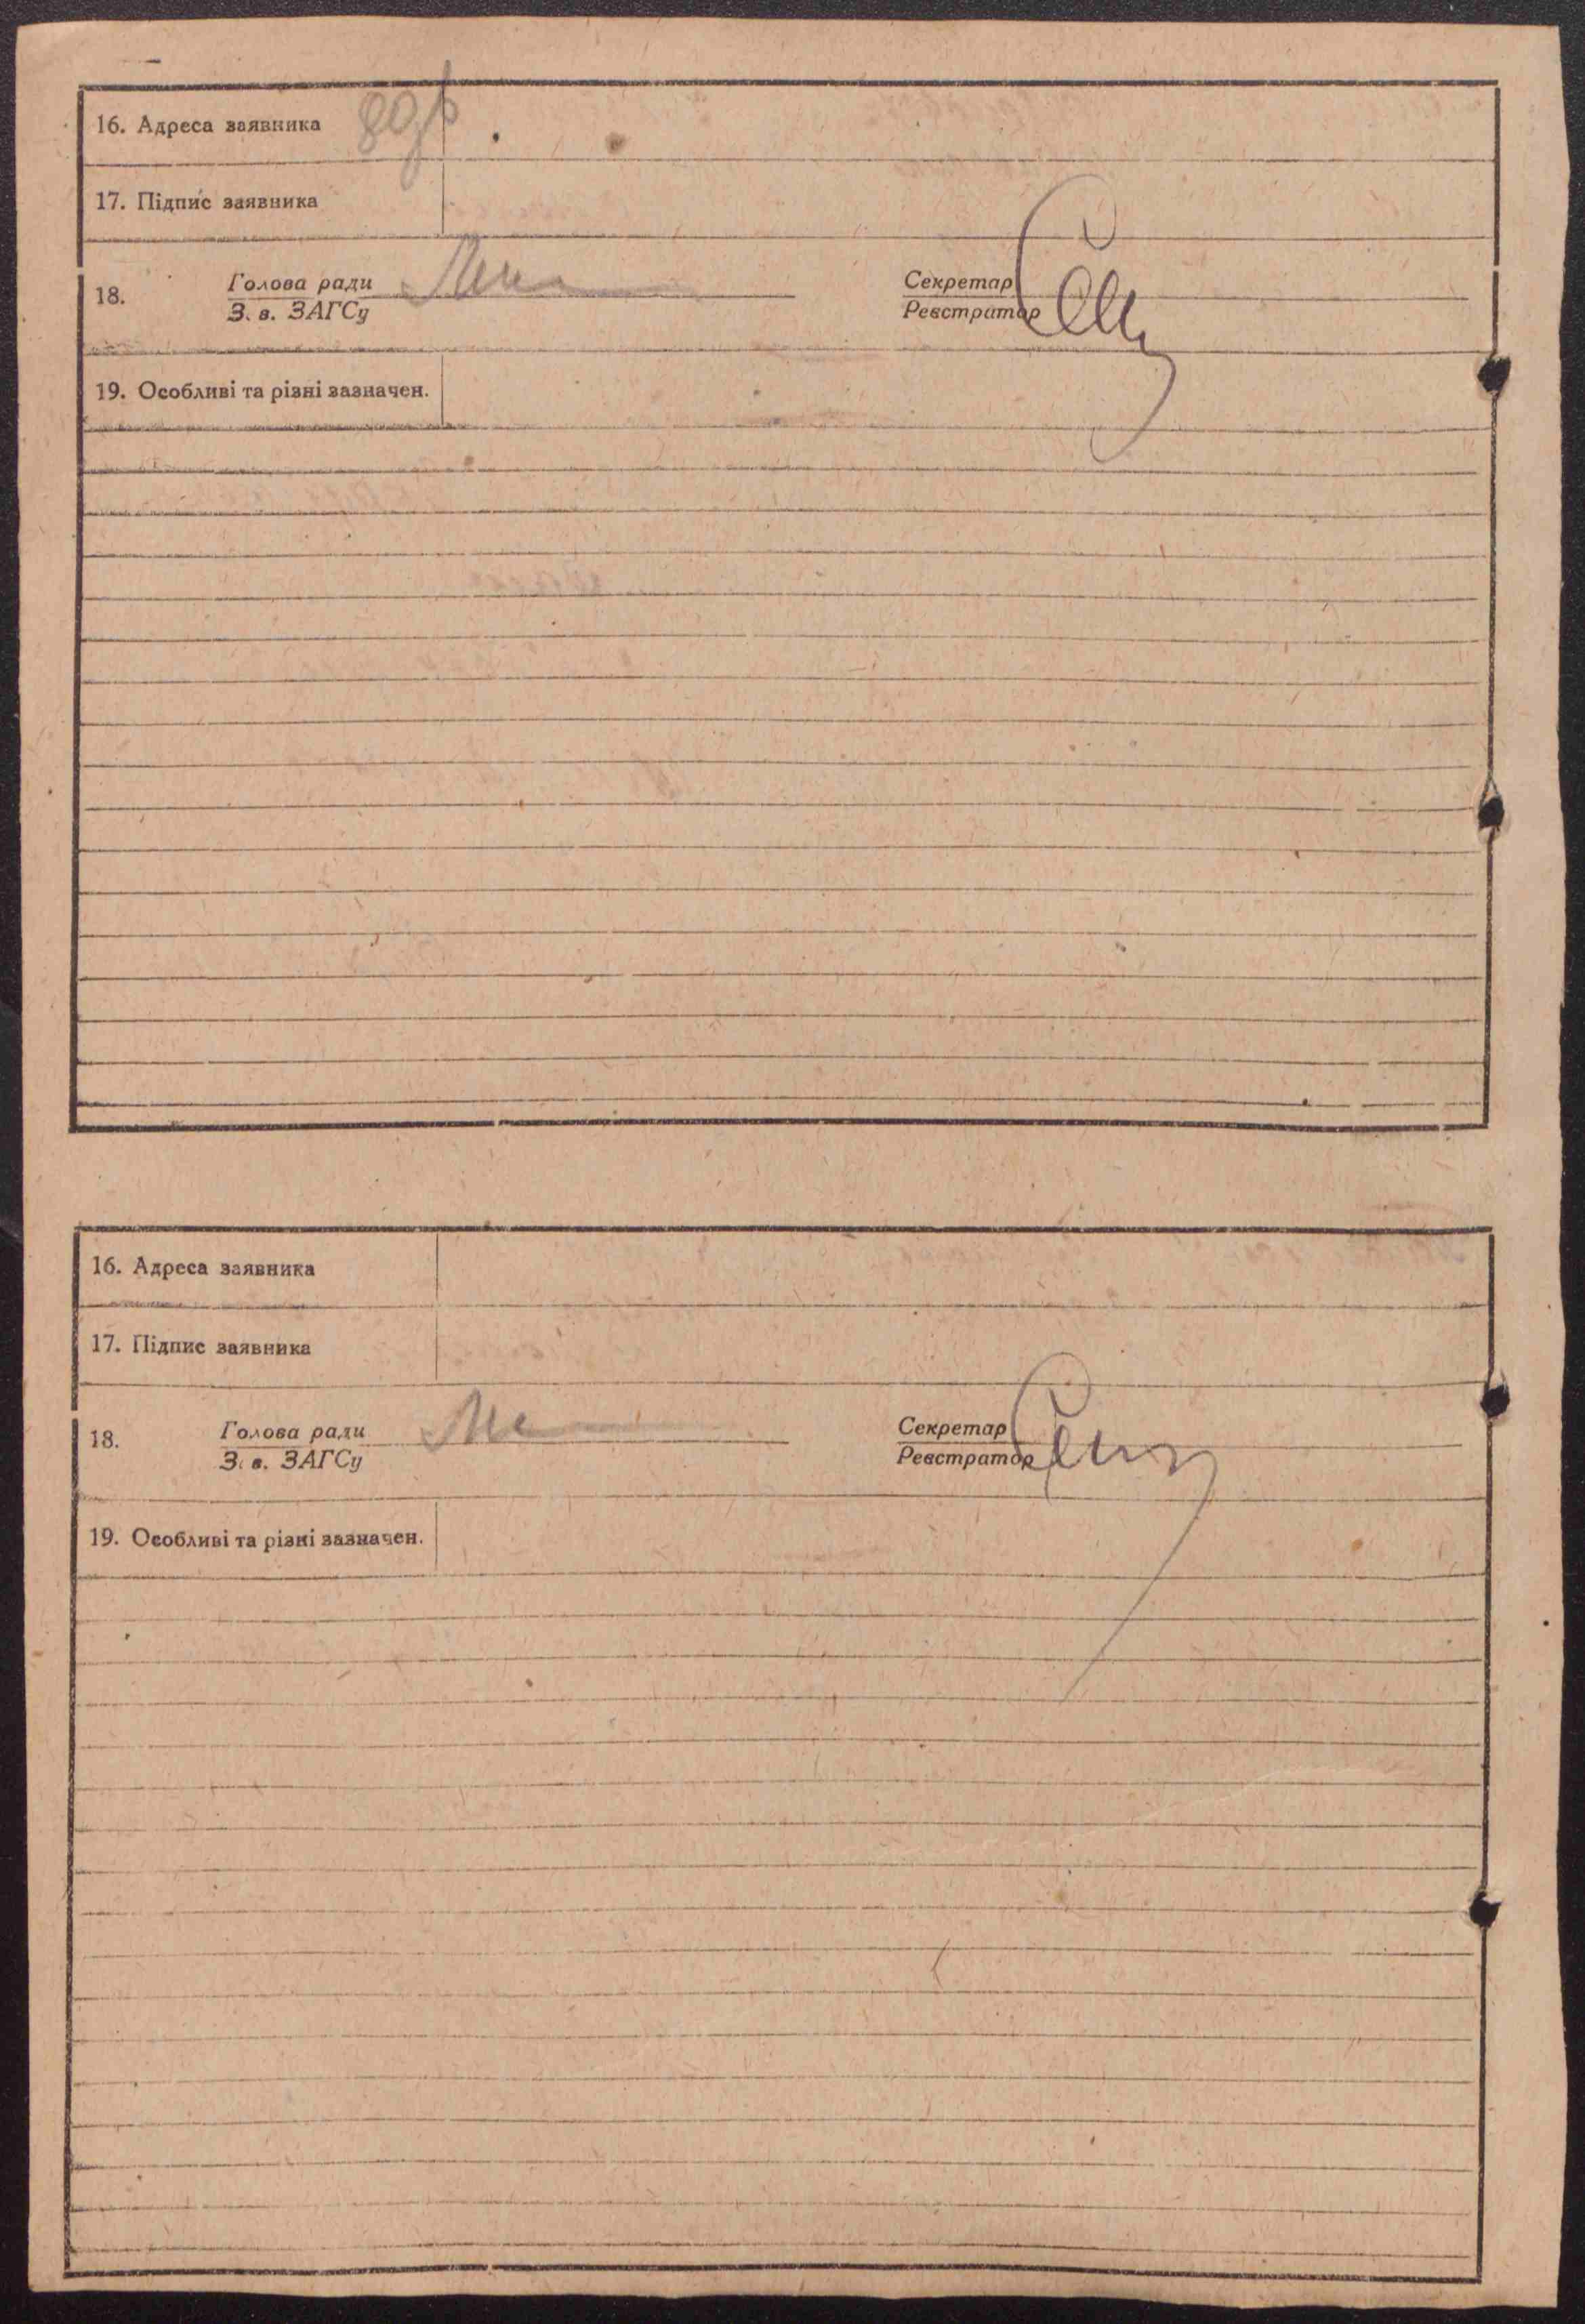 16. Адреса заявника
17. Підпис заявника
18. Голова ради Секретар
З. в. ЗАГСу Реєстратор
19. Особливі та різні зазначен.
16. Адреса заявника
17. Підпис заявника
18. Голова ради Секретар
З. в. ЗАГСу Реєстратор
19. Особливі та різні зазначен.